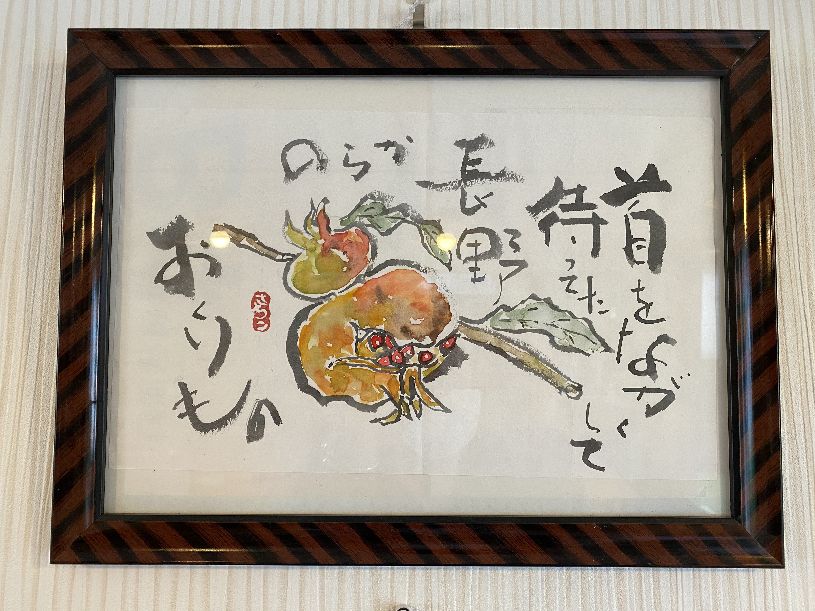 首をながくして
待ってた
長野
からの
おくりもの